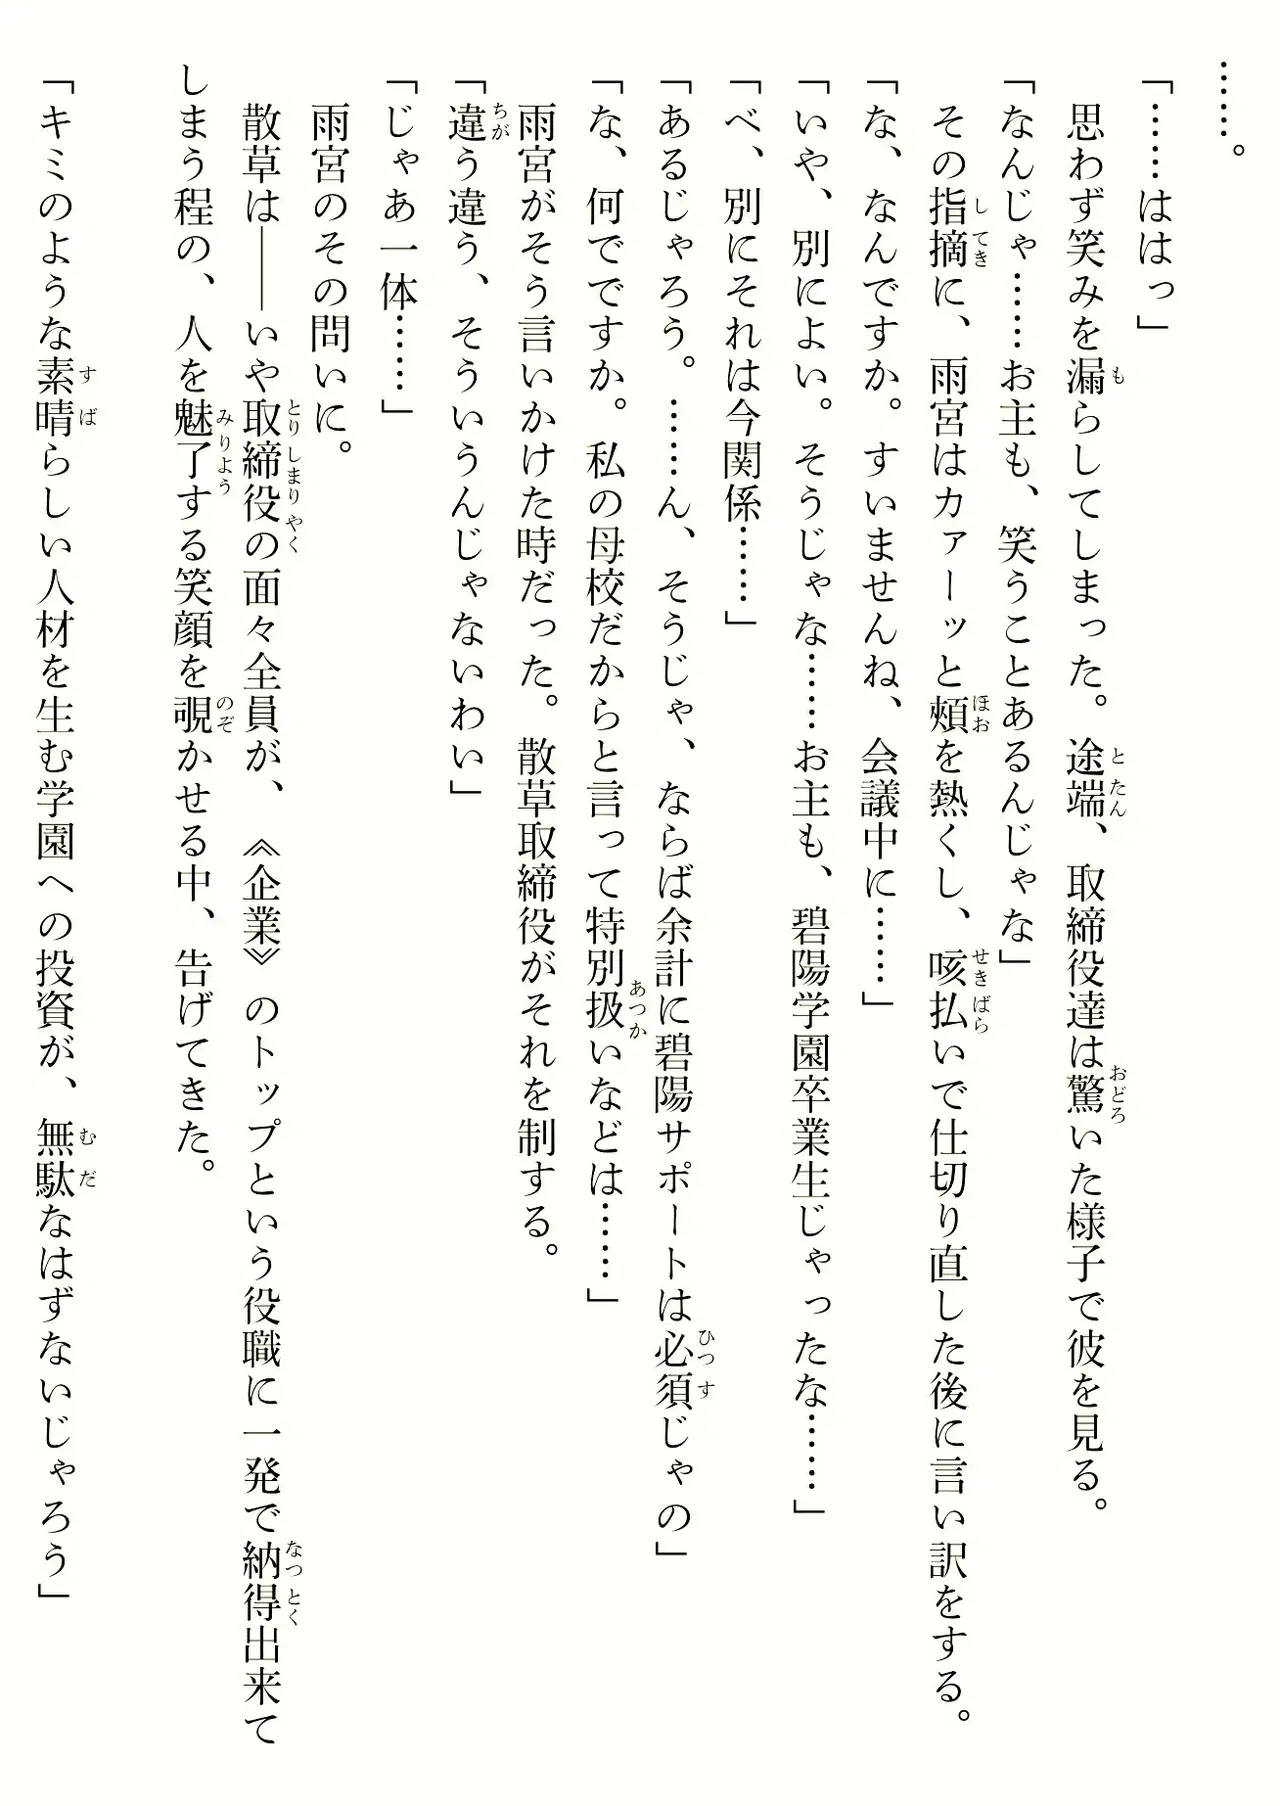 ……。
「……ははっ」
思わず笑みを漏らしてしまった。途端、取締役達は驚いた様子で彼を見る。
「なんじゃ……お主も、笑うことあるんじゃな」
その指摘に、雨宮はカァーッと頰を熱くし、咳払いで仕切り直した後に言い訳をする。
「な、なんですか。すいませんね、会議中に……」
「いや、別によい。そうじゃな……お主も、碧陽学園卒業生じゃったな……」
「べ、別にそれは今関係……」
「あるじゃろう。……ん、そうじゃ、ならば余計に碧陽サポートは必須じゃの」
「な、何でですか。私の母校だからと言って特別扱いなどは……」
雨宮がそう言いかけた時だった。散草取締役がそれを制する。
「違う違う、そういうんじゃないわい」
「じゃあ一体……」
雨宮のその問いに。
散草は――いや取締役の面々全員が、《企業》のトップという役職に一発で納得出来て
しまう程の、人を魅了する笑顔を覗かせる中、告げてきた。
「キミのような素晴らしい人材を生む学園への投資が、無駄なはずないじゃろう」